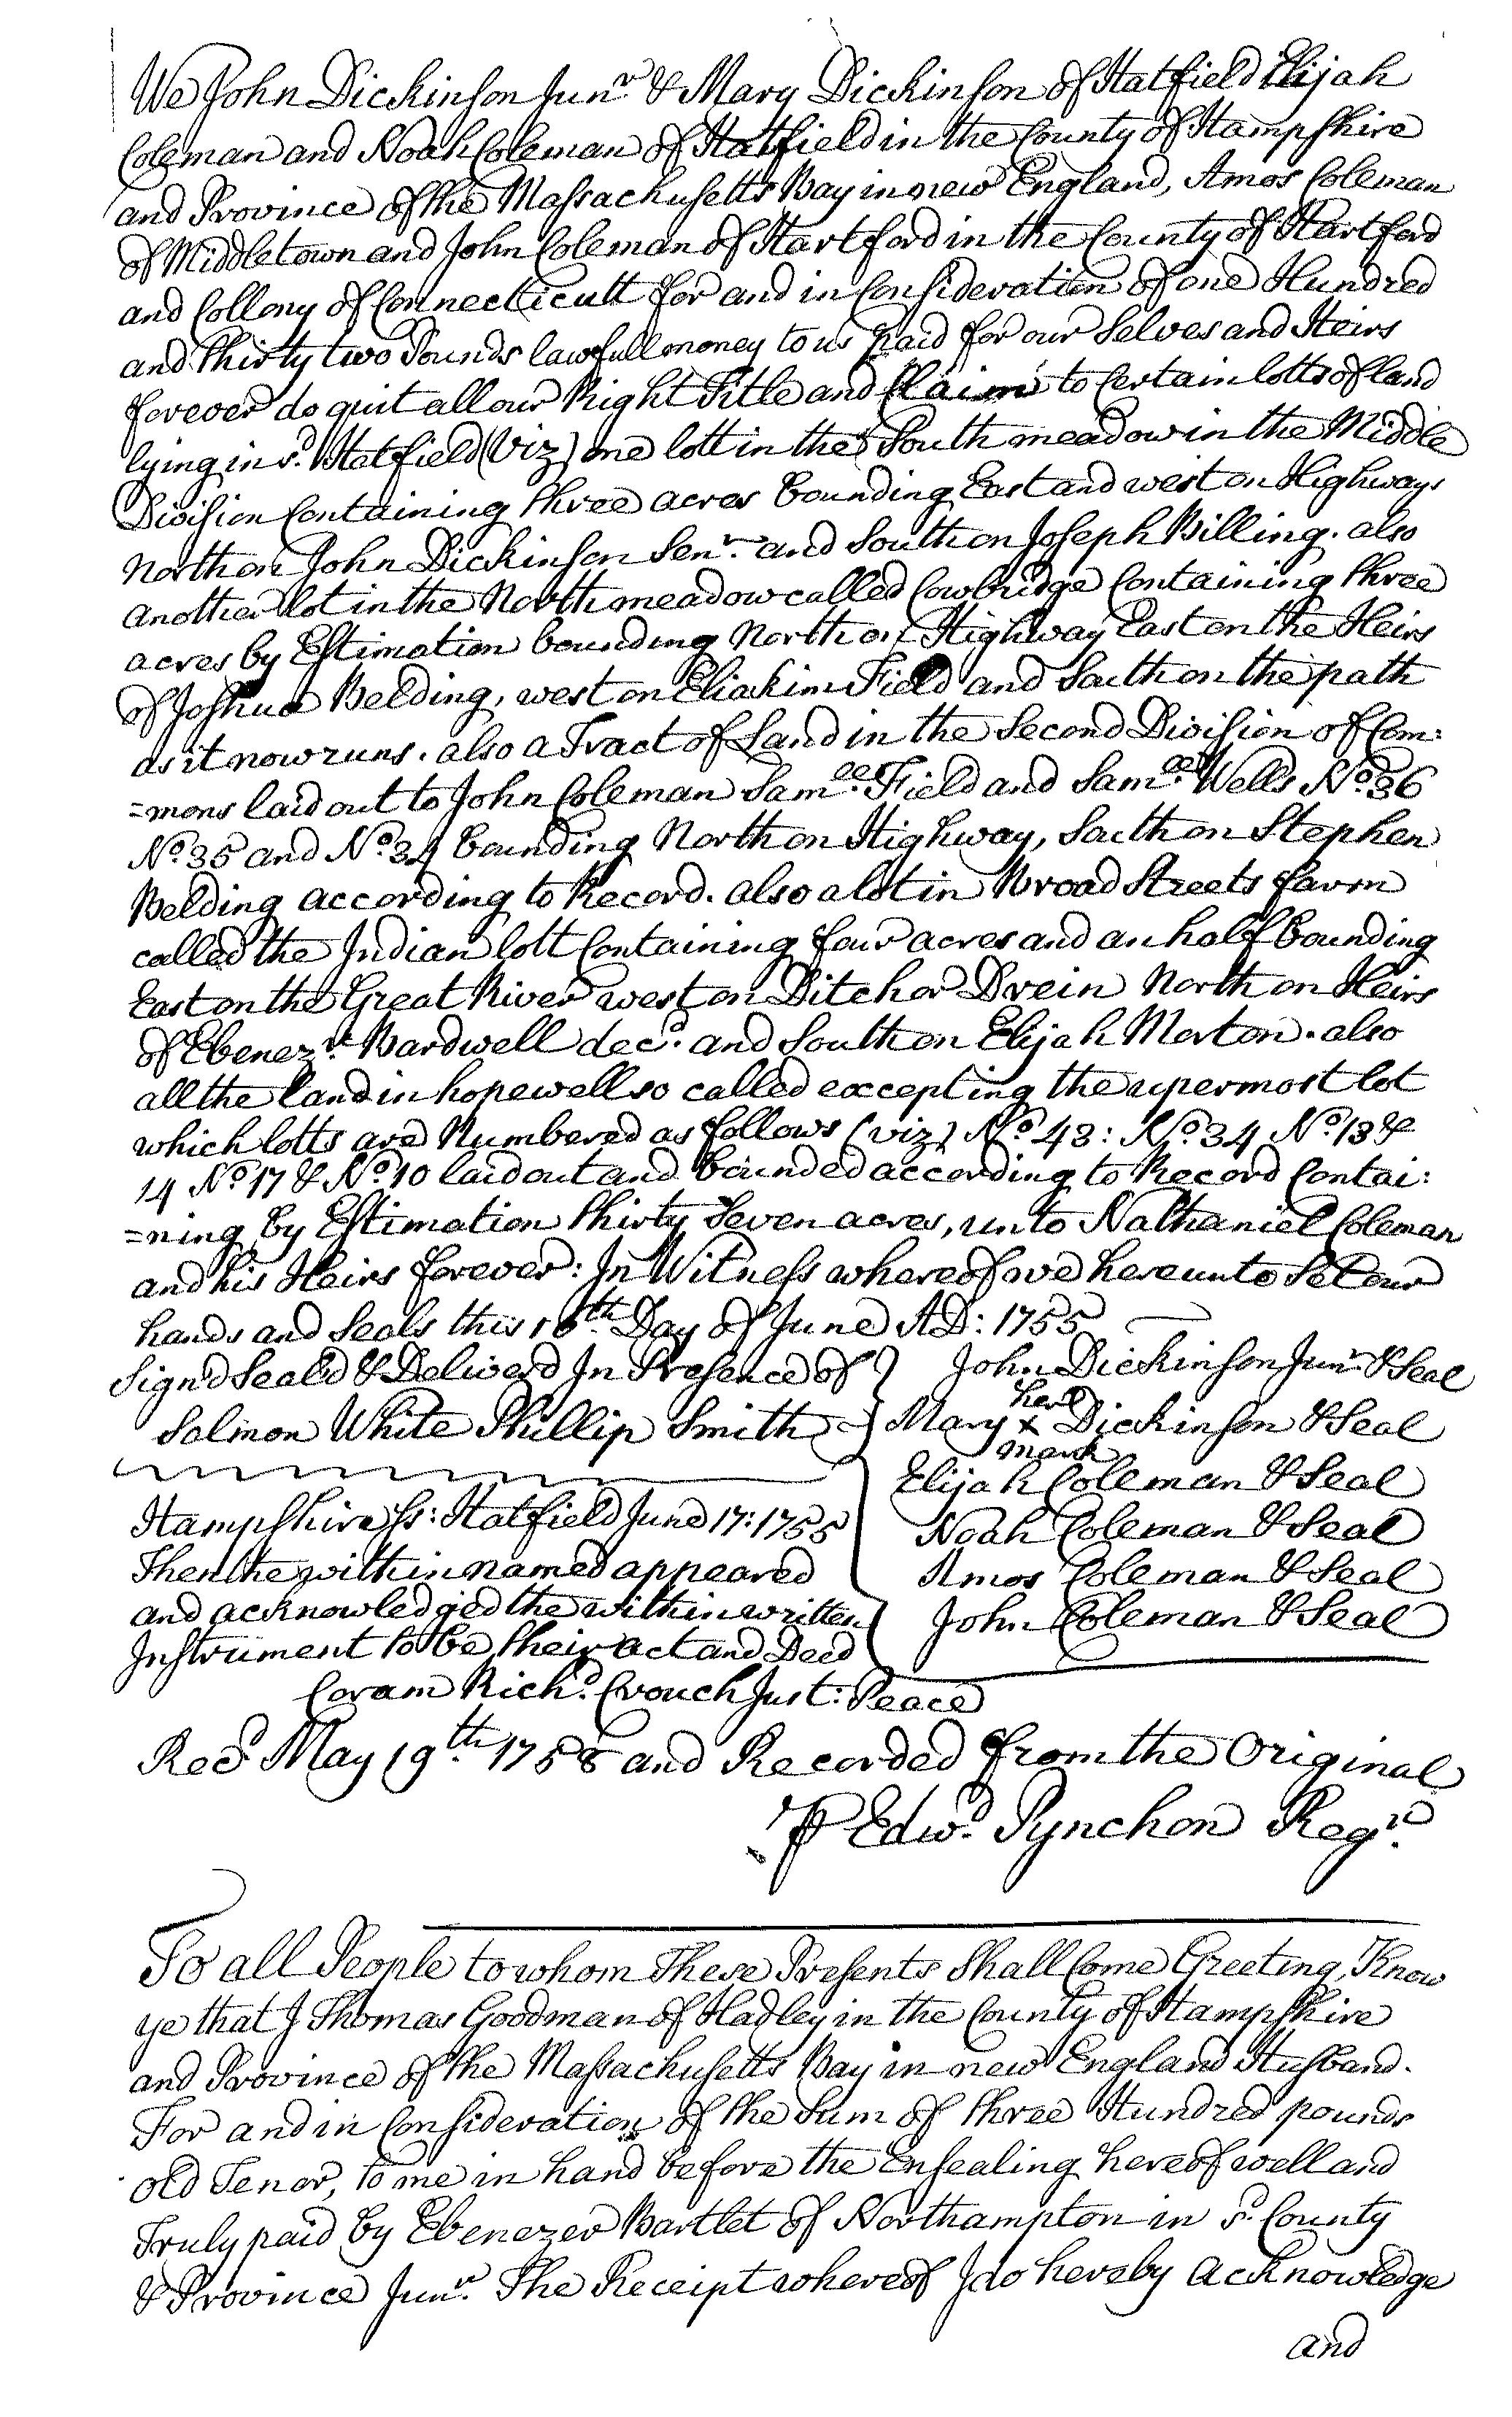 We John Dickinson Junr & Mary Dickinson of Hatfield Elijah
Coleman and Noah Coleman of Hatfield in the County of Hampshire
and Province of the Massachusetts Bay in new England, Amos Coleman
of Middletown and John Coleman of Hartford in the County of Hartford
and Collony of Connecticutt for and in Consideration of one Hundred
and Thirty two Pounds lawfull money to us paid for our Selves and Heirs
forever do quit all our Right Title and Claim to Certain lotts of land
lying in sd. Hatfield (Viz) one lott in the South meadow in the Middle
Division Containing Three acres bounding East and west on Highways
North on John Dickinson Senr. and South on Joseph Billing. also
another lot in the North meadow called Cowbridge Containing Three
acres by Estimation bounding North on Highway East on the Heirs
of Joshua Belding, west on Eliakim Field and South on the path
as it now runs. also a Tract of Land in the Second Division of Com:
=mons laid out to John Coleman Samll. Field and Samll. Wells No. 36
No. 35 and No. 34 bounding North on Highway, South on Stephen
Belding according to Record. also a lot in Broad Streets farm
called the Indian lott Containing four acres and an half bounding
East on the Great River west on Ditch or Drein North on Heirs
of Ebenezr. Bardwell decd. and South on Elijah Morton. also
all the land in hopewell so called excepting the upermost lot
which lotts are Numbered as follows (viz) No. 43: No. 34 No. 13 &
14 No. 17 & No. 10 laid out and bounded according to Record Contai:
=ning by Estimation Thirty Seven acres, unto Nathaniel Coleman
and his Heirs forever: In Witness whereof we hereunto Set our
hands and Seals this 16th. Day of June AD: 1755
Signd Seald & Deliverd In Presence of John Dickinson Junr & Seal
Salmon White Phillip Smith Mary her x mark Dickinson & Seal
Elijah Coleman & Seal
Hampshire ss: Hatfield June 17: 1755 Noah Coleman & Seal
Then the within named appeared Amos Coleman & Seal
and acknowledged the within written John Coleman & Seal
Instrument to be their act and Deed
Coram Richd. Crouch Just: Peace
Recd. May 19th. 1758 and Recorded from the Original
P Edwd. Pynchon Regr.
To all People to whom These Presents Shall Come Greeting, Know
ye that I Thomas Goodman of Hadley in the County of Hampshire
and Province of the Massachusetts Bay in new England Husband.
For and in Consideration of the Sum of Three Hundred pounds
old Tenor, to me in hand before the Ensealing hereof well and
Truly paid by Ebenezer Bartlet of Northampton in sd. County
& Province Junr. The Receipt whereof I do hereby acknowledge
and